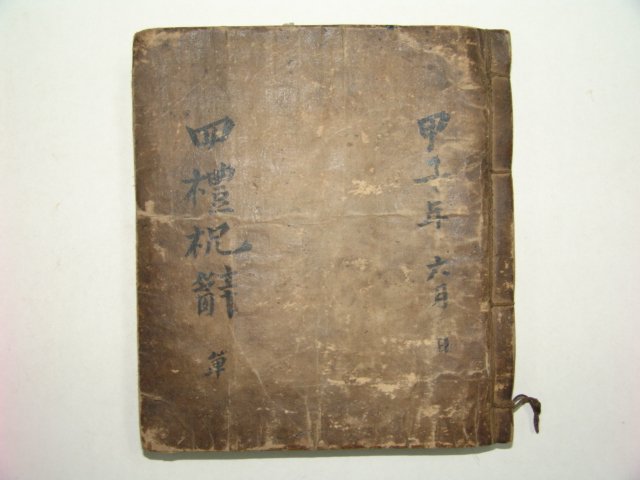 甲子年 六月 日
四禮祝辭 單